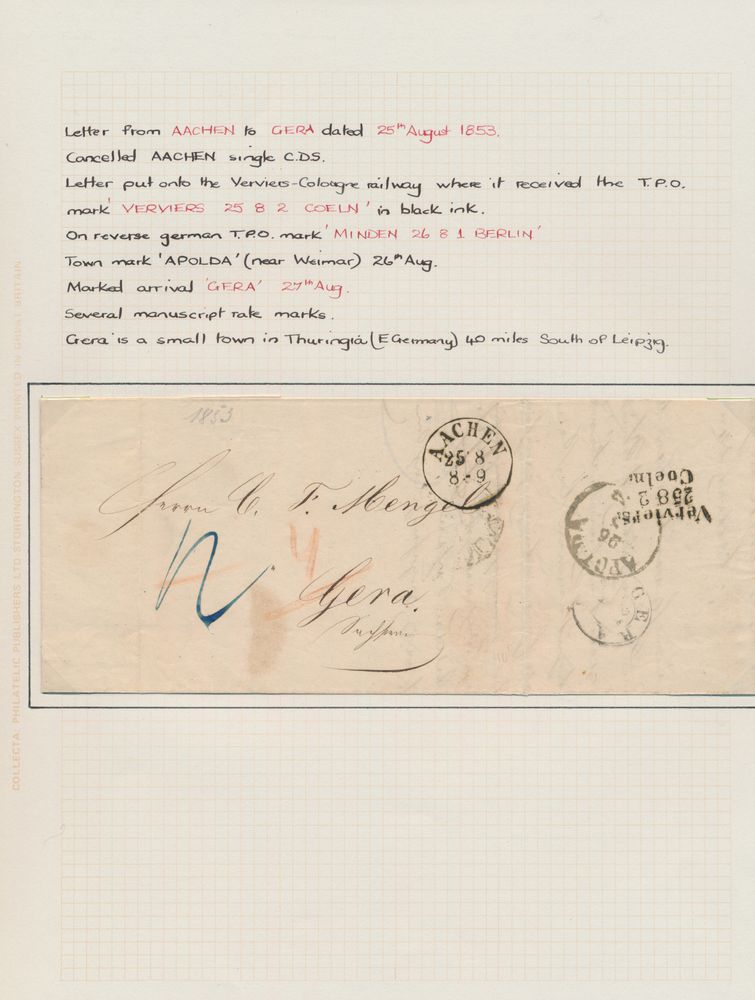 Letter from AACHEN to GERA dated 25th August 1853.
Cancelled AACHEN single C.D.S.
Letter put onto the Verviers-Cologne railway where it received the T.P.O.
mark 'VERVIERS 25 8 2 COELN' in black ink.
On reverse german T.P.O. mark 'MINDEN 26 8 1 BERLIN'
Town mark 'APOLDA' (near Weimar) 26th Aug.
Marked arrival 'GERA' 27th Aug.
Several manuscript rate marks.
Gera is a small town in Thuringia (E Germany) 40 miles South of Leipzig.
COLLECTA: PHILATELIC PUBLISHERS LTD STORRINGTON, SUSSEX PRINTED IN GREAT BRITAIN
1853
AACHEN
25 8
8-9
Herrn C. F. Mengel
Gera.
Verviers
25 8 2
Coeln
APOLDA
26
GERA